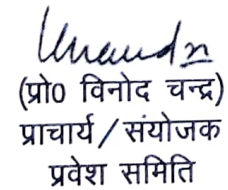 (प्रो0 विनोद चन्द्र)
प्राचार्य / संयोजक
प्रवेश समिति